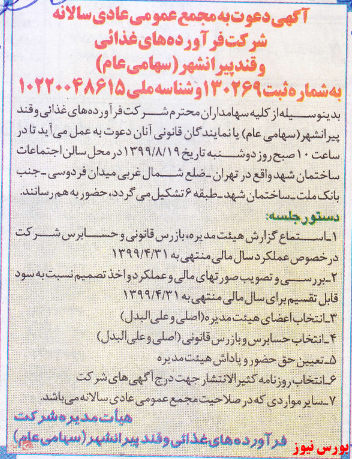 آگهی دعوت به مجمع عمومی عادی سالانه
شرکت فرآورده‌های غذائی
وقند پیرانشهر (سهامی عام)
به شماره ثبت ۱۳۰۲۶۹ وشناسه ملی ۱۰۲۲۰۰۴۸۶۱۵
بدینوسیله از کلیه سهامداران محترم شرکت فرآورده‌های غذائی وقند
پیرانشهر (سهامی عام) یا نمایندگان قانونی آنان دعوت به عمل می‌آید تا در
ساعت ۱۰ صبح روز دوشنبه تاریخ ۱۳۹۹/۸/۱۹ در محل سالن اجتماعات
ساختمان شهد واقع در تهران - ضلع شمال غربی میدان فردوسی - جنب
بانک ملت - ساختمان شهد - طبقه ۶ تشکیل می‌گردد، حضور به هم رسانند.
دستور جلسه:
۱- استماع گزارش هیئت مدیره، بازرس قانونی و حسابرس شرکت
در خصوص عملکرد سال مالی منتهی به ۱۳۹۹/۴/۳۱
۲- بررسی و تصویب صورتهای مالی و عملکرد و اخذ تصمیم نسبت به سود
قابل تقسیم برای سال مالی منتهی به ۱۳۹۹/۴/۳۱
۳- انتخاب اعضای هیئت مدیره (اصلی و علی البدل)
۴- انتخاب حسابرس و بازرس قانونی (اصلی و علی البدل)
۵- تعیین حق حضور و پاداش هیئت مدیره
۶- انتخاب روزنامه کثیرالانتشار جهت درج آگهی‌های شرکت
۷- سایر مواردی که در صلاحیت مجمع عمومی عادی سالانه می‌باشد.
هیأت مدیره شرکت
فرآورده‌های غذائی وقند پیرانشهر (سهامی عام)
بورس نیوز